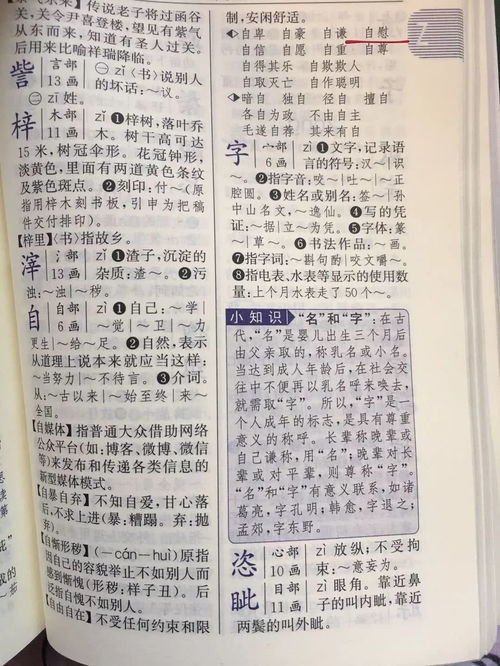 传说老子将过函谷
关，关令尹喜登楼，望见有紫气
从东而来，知道有圣人过关。
后用来比喻祥瑞降临。
訾 言部 13画 ㊀ zǐ〈书〉说别人
的坏话：~议。
㊁ zī姓。
梓 木部 11画 zǐ ❶梓树，落叶乔
木。树干高可达
15米，树冠伞形。花冠钟形，
淡黄色，里面有两道黄色条纹
及紫色斑点。❷刻印：付~（原
指用梓木刻书板，引申为把稿
件交付排印）。
【梓里】〈书〉指故乡。
滓 氵部 13画 zǐ ❶渣子，沉淀的
杂质：渣~。❷污
浊：~浊|~秽。
自 自部 6画 zì ❶自己：~学|
~觉|~卫|~力
更生|~给~足。❷自然，表示
从道理上说本来就应当这样：
~当努力|~不待言。❸介词。
从：~古以来|~始至终|来~
全国。
【自媒体】指普通大众借助网络
公众平台（如：博客、微博、微信
等）来发布和传递各类信息的
新型媒体模式。
【自暴自弃】不知自爱，甘心落
后，不求上进（暴：糟蹋。弃：抛
弃）。
【自惭形秽】（—cán—huì）原指
因自己的容貌举止不如别人而
感到惭愧（形秽：样子丑）。后
泛指自愧不如别人。
【自由自在】不受任何约束和限
制，安闲舒适。
自卑 自豪 自谦 自慰
自信 自愿 自重 自尊
自得其乐 自欺欺人
自取灭亡 自作聪明
暗自 独自 径自 擅自
各自为政 不由自主
毛遂自荐 其来有自
Z
字 宀部 6画 zì ❶文字，记录语
言的符号：汉~|识
~。❷指字音：咬~|吐~|~正
腔圆。❸姓名或别名：签~|孙
中山名文，~逸仙。❹写的凭
证：~据|立~为凭。❺字体：篆
~|草~。❻书法作品：~画。
❼指字词：~斟句酌|咬文嚼~。
❽指电表、水表等显示的使用数
量：上个月水表走了50个~。
小知识 “名”和“字”：在古
代，“名”是婴儿出生三个月后
由父亲取的，称乳名或小名。
当达到成人年龄后，在社会交
往中不便再以乳名呼来唤去，
就需取“字”。所以，“字”是一
个人成年的标志，是具有尊重
意义的称呼。长辈称晚辈或
自己谦称，用“名”；晚辈对长
辈或对平辈，则尊称“字”。
“名”和“字”有意义联系，如诸
葛亮，字孔明；韩愈，字退之；
孟郊，字东野。
恣 心部 10画 zì 放纵；不受拘
束：~意妄为。
眦 目部 11画 zì 眼角。靠近鼻
子的叫内眦，靠近
两鬓的叫外眦。